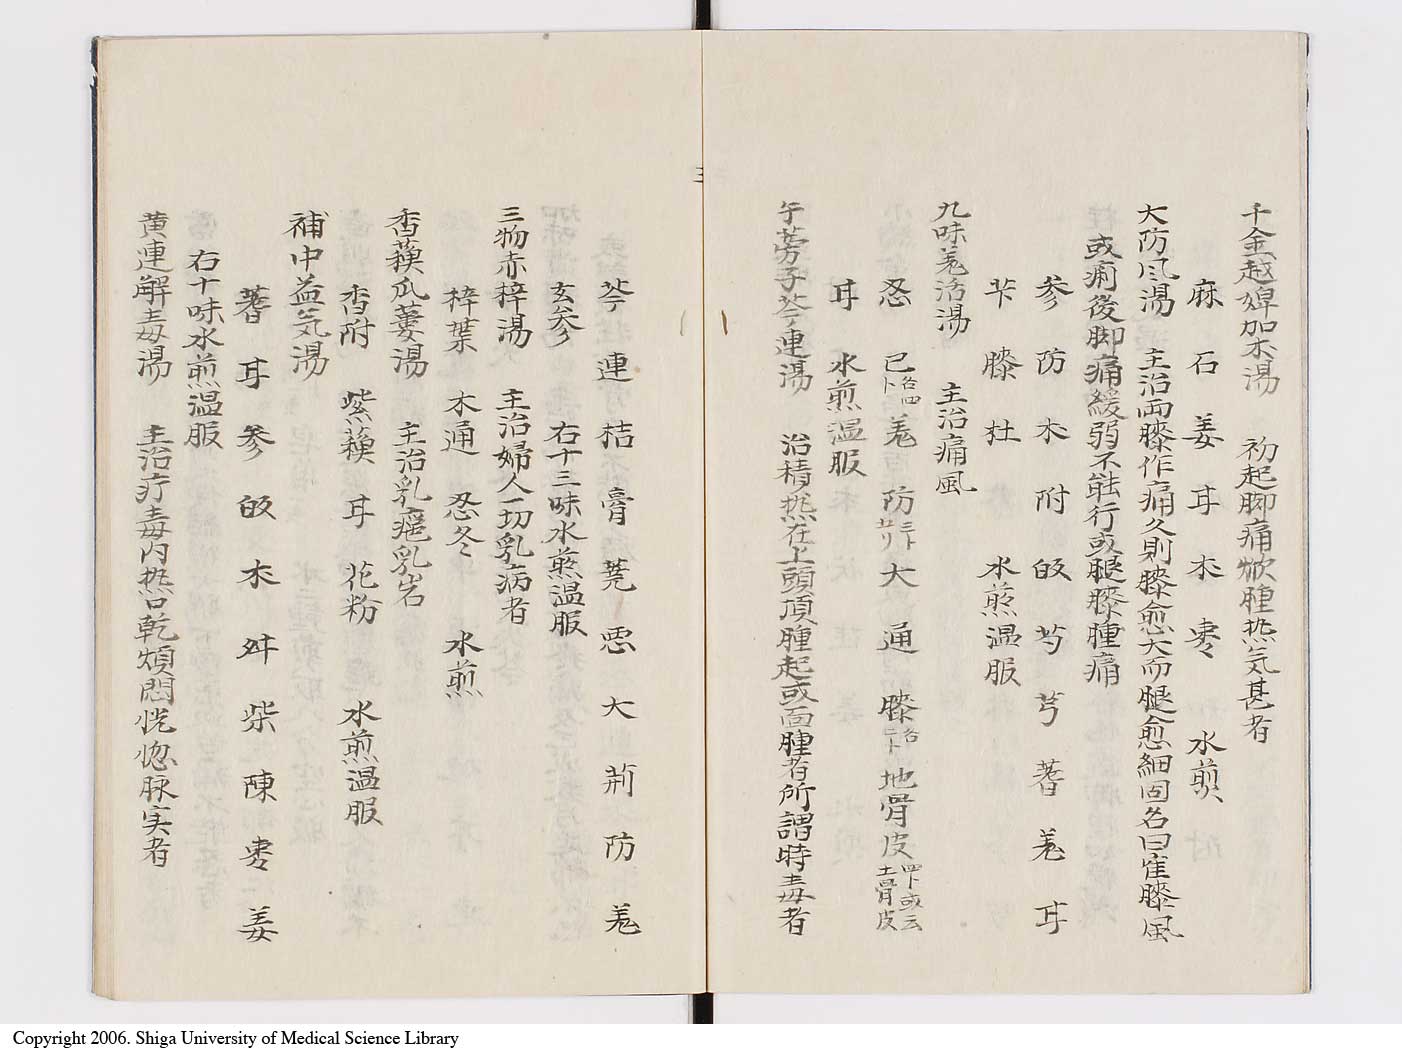 千金越婢加朮湯 初起脚痛焮腫热気甚者
麻 石 姜 耳 朮 枣 水煎
大防风湯 主治両膝作痛久則膝愈大而腿愈細固名曰雀膝風
或痢後脚痛緩弱不能行或腿膝腫痛
参 防 朮 附 㕮 芍 芎 蓍 羗 耳
牛 膝 杜 水煎温服
九味羗活湯 主治痛風
忍 已各四卜 羗 防三卜五リ 大 通 膝各二卜 地骨皮四卜或云土骨皮
耳 水煎温服
牛蒡子芩連湯 治積热在上頭頂腫起或面腫者所謂時毒者
芩 連 桔 膏 荒 悪 大 荊 防 羗
玄参 右十三味水煎温服
三物赤梓湯 主治婦人一切乳病者
梓葉 木通 忍冬 水煎
香蘓瓜蔞湯 主治乳癰乳岩
香附 紫蘓 耳 花粉 水煎温服
補中益気湯
蓍 耳 参 㕮 朮 舛 柴 陳 枣 姜
右十味水煎温服
黄連解毒湯 主治疔毒内热口乾煩悶恍惚脉実者
Copyright 2006. Shiga University of Medical Science Library